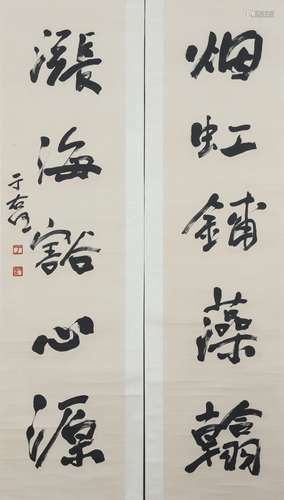 烟虹铺藻翰
漲海豁心源
于右任